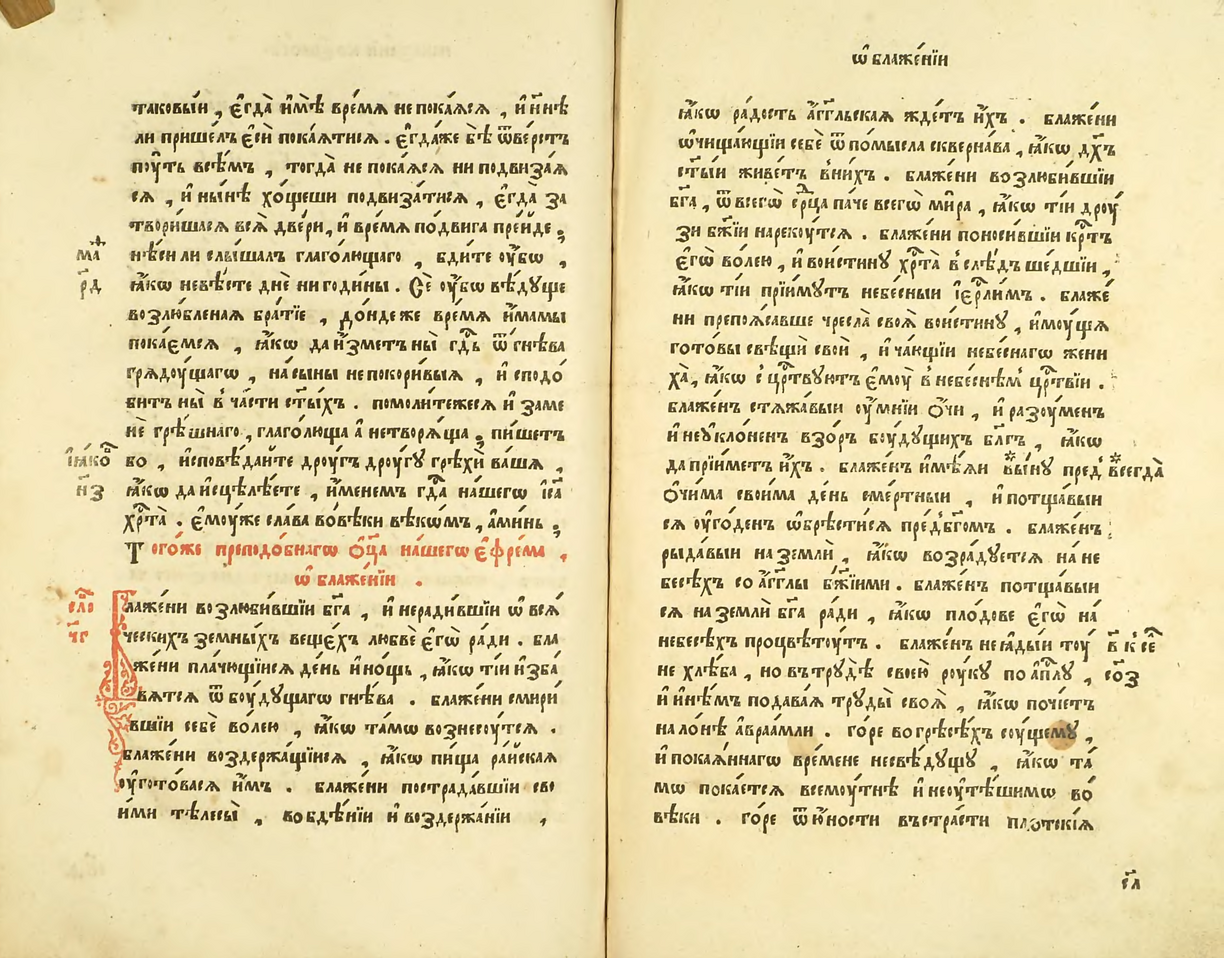 таковыи , є҆гда̀ и҆мѣ̀ времѧ непока́ѧсѧ , и҆ нн҃ѣ
ли пришелъ є҆сѝ пока́ѧтисѧ . є҆гда́же бѣ̀ ѿве́рстъ
пꙋ́ть всѣ́мъ , тогда̀ не пока́ѧсѧ ни подвиза́ѧ
сѧ , и҆ ны́нѣ хо́щеши подвиза́тисѧ , є҆гда̀ за
твори́шасѧ всѧ̀ две́ри, и҆ времѧ по́двига пре́иде ,
ма҃
рд҃
нѣ́си ли слы́шалъ глаго́лющаго , бди́те ᲂу҆̀бѡ ,
ꙗ҆́кѡ невѣ́сте днѐ ни годи́ны . Сѐ ᲂу҆̀бѡ вѣ́дꙋще
возлю́бленаѧ бра́тїе , до́ндеже времѧ и҆́мамы
пока́ємсѧ , ꙗ҆́кѡ да и҆́зметъ ны̀ гд҃ь ѿ гнѣ́ва
грѧдꙋ́щагѡ , на сы́ны непокори́выѧ , и҆ сподо́
битъ ны̀ в ча́сти ст҃ы́хъ . помоли́тежесѧ и҆ за мѐ
не грѣ́шнаго , глаго́люща а҆ нетворѧ́ща , пи́шетъ
і҆ꙗ́ко
н҃з
бо , и҆сповѣ́даите дрꙋ́гъ дрꙋ́гꙋ грѣхѝ ва́шѧ ,
ꙗ҆́кѡ да и҆сцѣлѣ́ете , и҆́менемъ гд҃а на́шегѡ і҆с҃а
хр҃та̀ . є҆мꙋ́же сла́ва во вѣ́ки вѣкѡ́мъ , а҆ми́нь ,
Того́же преподо́бнагѡ ѻ҆ц҃а̀ на́шегѡ є҆фре́ма ,
ѡ҆ блаже́нїи .
сло҃
ч҃г
Блаже́ни возлюби́вшїи бг҃а , и҆ неради́вшїи ѡ҆ всѧ́
ческихъ земны́хъ веще́хъ любвѐ є҆гѡ̀ ра́ди . бла
же́ни пла́чющїисѧ де́нь и҆ но́щь , ꙗ҆́кѡ ті́и и҆зба́
вѧтсѧ ѿ бꙋ́дꙋщагѡ гнѣ́ва . блаже́ни смири́
вшїи себѐ во́лею , ꙗ҆́кѡ та́мѡ вознесꙋ́тсѧ .
блаже́ни воздержа́щїисѧ , ꙗ҆́кѡ пи́ща ра́искаѧ
ᲂу҆гото́васѧ и҆̀мъ . блаже́ни пострада́вшїи сво
и́ми тѣлесы̀ , во бдѣ́нїи и҆ воздержа́нїи ,
ѡ҆ блаже́нїи
ꙗ҆́кѡ ра́дость а҆́гг҃льскаѧ жде́тъ и҆́хъ . блаже́ни
ѡ҆чища́ющїи себѐ ѿ по́мысла скве́рнава , ꙗ҆́кѡ дх҃ъ
ст҃ы́и живе́тъ в ни́хъ . блаже́ни возлюби́вшїи
бг҃а , ѿ всегѡ̀ ср҃ца па́че всегѡ̀ ми́ра , ꙗ҆́кѡ ті́и дрꙋ́
зи бж҃їи нареко́утсѧ . блаже́ни поноси́вшїи кр҃тъ
є҆гѡ̀ во́лею , и҆ вои́стинꙋ хр҃та̀ в слѣ́дъ ше́дшїи ,
ꙗ҆́кѡ ті́и прїи́мꙋтъ небе́сныи і҆ер҃ли́мъ . блаже́
ни препоѧ́савше чре́сла своѧ̀ вои́стинꙋ , и҆мꙋ́щѧ
гото́вы свѣ́щи свои̑ , и҆ ча́ющїи небе́снагѡ жени
ха̀ , ꙗ҆́кѡ с цр҃твꙋютъ є҆мꙋ̀ в небе́снѣм цр҃твїи .
блаже́нъ стѧжа́выи ᲂу҆́мнїи ѻ҆́чи , и҆ разꙋ́менъ
и҆ неꙋкло́ненъ взо́ръ бꙋ́дꙋщихъ бл҃гъ , ꙗ҆́кѡ
да прїи́метъ и҆́хъ . блаже́нъ и҆мѣ́ѧи вы́нꙋ пред всегда̀
ѻ҆чи́ма свои́ма де́нь сме́ртныи , и҆ потща́выи
сѧ ᲂу҆го́денъ ѡ҆брѣ́стисѧ пред бг҃омъ . блаже́нъ
рыда́выи на землѝ , ꙗ҆́кѡ возра́дꙋетсѧ на не
бесѣ́хъ со а҆́гг҃лы бж҃їими . блаже́нъ потща́выи
сѧ на землѝ бг҃а ра́ди , ꙗ҆́кѡ пло́дове є҆гѡ̀ на
небесѣ́хъ процвѣтꙋ́тъ . блаже́нъ не ꙗ҆ды́и тꙋ́
в҃ к се҃
со҃з
не хлѣ́ба , но въ трꙋдѣ̀ свое́ю рꙋ́кꙋ по а҆пл҃ꙋ ,
и҆ и҆нѣ́мъ подава́ѧ трꙋды̀ своѧ̀ , ꙗ҆́кѡ почі́етъ
на ло́нѣ а҆враа́мли . го́ре во грѣсѣ́хъ сꙋ́щемꙋ ,
и҆ покаѧ́ннагѡ вре́мене несвѣ́дꙋщꙋ , ꙗ҆́кѡ та́
мѡ пока́етсѧ всемꙋ́тнѣ и҆ неꙋтѣ́шимѡ во
вѣ́ки . го́ре ѿ ю҆́ности въ стра́сти пло́тскїѧ
сл҃